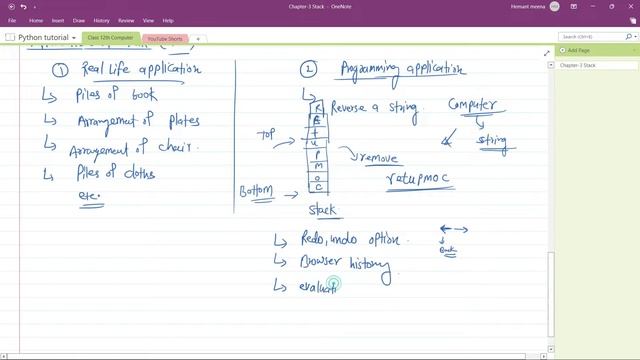 Chapter-3 Stack - OneNote
Hemant meena
File Home Insert Draw History Review View Help
Python tutorial
Class 12th Computer
YouTube Shorts
Add Page
Chapter-3 Stack
① Real Life application
Piles of book
Arrangement of plates
Arrangement of chair.
Piles of cloths
etc.
② Programming application
Reverse a string.
Computer
string
R
E
t
u
P
M
o
C
TOP
Bottom
Stack
remove
retupmoc
Redo, undo option.
Back
Browser history
evaluati